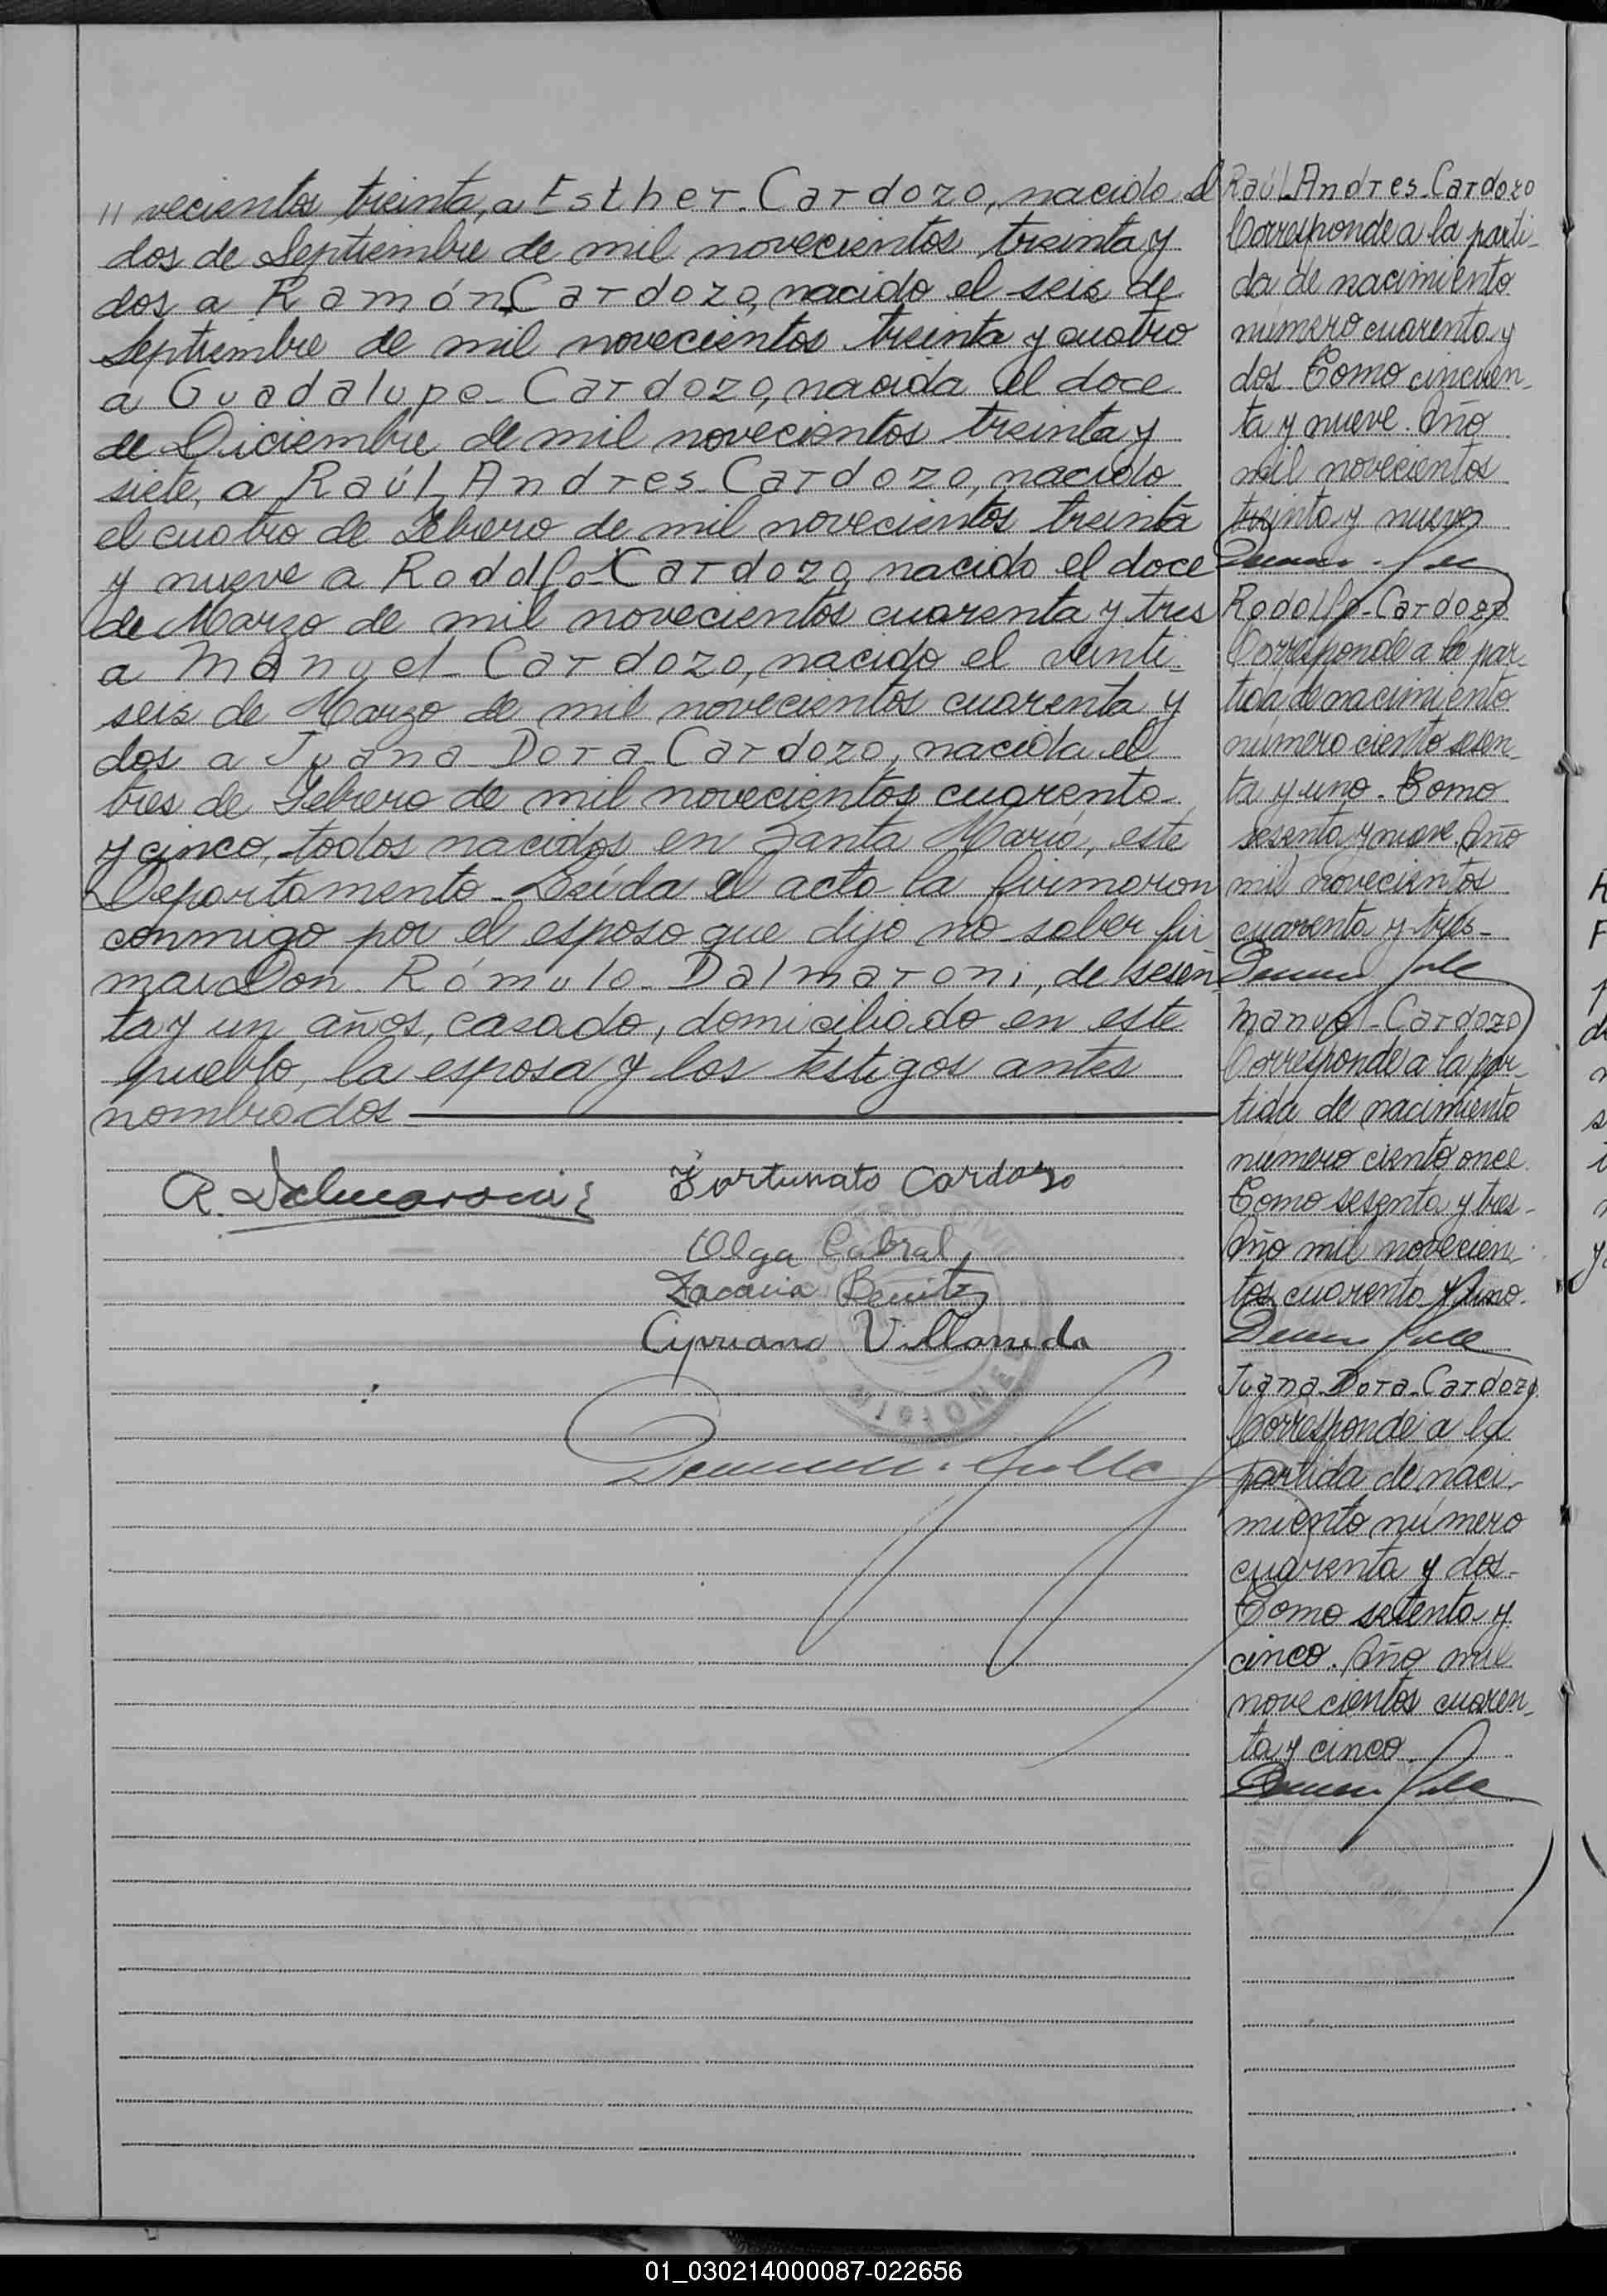 // vecientos treinta, a Esther Cardozo, nacido el
dos de Septiembre de mil novecientos treinta y
dos a Ramón Cardozo, nacido el seis de
Septiembre de mil novecientos treinta y cuatro
a Guadalupe Cardozo, nacida el doce
de Diciembre de mil novecientos treinta y
siete, a Raúl Andres Cardozo, nacido
el cuatro de Febrero de mil novecientos treinta
y nueve a Rodolfo Cardozo, nacido el doce
de Marzo de mil novecientos cuarenta y tres
a Manuel Cardozo, nacido el veinti-
seis de Marzo de mil novecientos cuarenta y
dos a Juana Dora Cardozo, nacida el
tres de Febrero de mil novecientos cuarenta
y cinco, todos nacidos en Santa María, este
Departamento - Leída el acta la firmaron
conmigo por el esposo que dijo no saber fir-
mar Don Rómulo Dalmaroni, de sesen-
ta y un años, casado, domiciliado en este
pueblo, la esposa y los testigos antes
nombrados
R. Dalmaroni
Fortunato Cardozo
Olga Cabral
Zacaria Benitez
Cipriano Villaneda
MISIONES
Raúl Andres Cardozo
Corresponde a la parti-
da de nacimiento
número cuarenta y
dos. Tomo cincuen-
ta y nueve. Año
mil novecientos
treinta y nueve
Rodolfo Cardozo
Corresponde a la par-
tida de nacimiento
número ciento sesen-
ta y uno. Tomo
sesenta y nueve. Año
mil novecientos
cuarenta y tres-
Manuel Cardozo
Corresponde a la par-
tida de nacimiento
número ciento once
Tomo sesenta y tres-
Año mil novecien-
tos cuarenta y uno.
Juana Dora Cardozo
Corresponde a la
partida de naci-
miento número
cuarenta y dos-
Tomo setenta y
cinco. Año mil
novecientos cuaren-
ta y cinco.
01_030214000087-022656